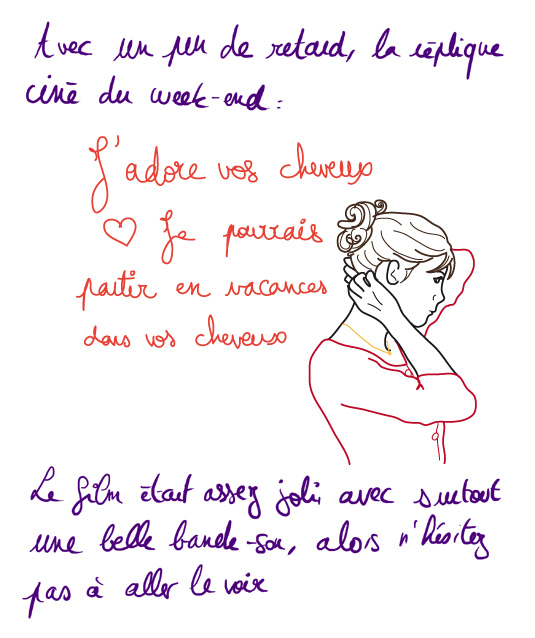 Avec un peu de retard, la réplique
ciné du week-end :
J'adore vos cheveux
♡ Je pourrais
partir en vacances
dans vos cheveux
Le film était assez joli avec surtout
une belle bande-son, alors n'hésitez
pas à aller le voir